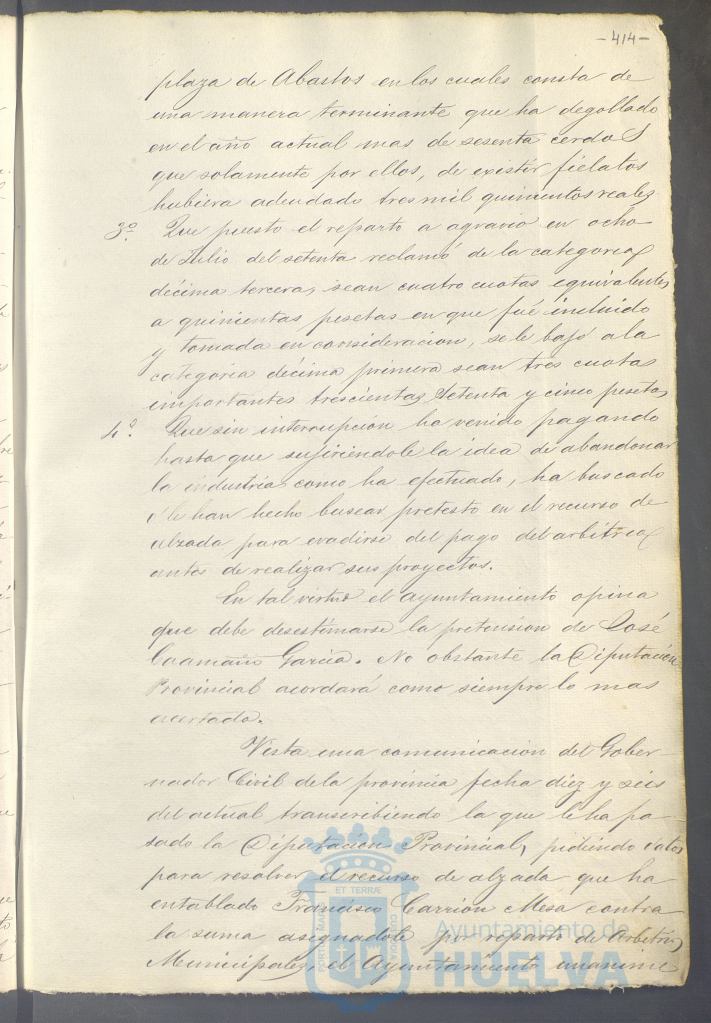 -414-
plaza de Abastos en los cuales consta de
una manera terminante que ha degollado
en el año actual mas de sesenta cerdos
que solamente por ellos, de existir fielatos
hubiera adeudado tres mil quinientos reales
3º. Que puesto el reparto a agravio en ocho
de Julio del setenta reclamó de la categoria
décima tercera, sean cuatro cuotas equivalentes
a quinientas pesetas en que fué incluido
y tomada en consideracion, se le bajó a la
categoria décima primera sean tres cuotas
importantes trescientas setenta y cinco pesetas
4º. Que sin interrupción ha venido pagando
hasta que sujiriéndole la idea de abandonar
la industria como ha efectuado, ha buscado
ó le han hecho buscar pretesto en el recurso de
alzada para evadirse del pago del arbitrio
antes de realizar sus proyectos.
En tal virtud el Ayuntamiento opina
que debe desestimarse la pretension de José
Caamaño Garcia. No obstante la Diputación
Provincial acordará como siempre lo mas
acertado.
Vista una comunicacion del Gober-
nador Civil de la provincia fecha diez y seis
del actual transcribiendo la que le ha pa-
sado la Diputación Provincial, pidiendo datos
para resolver el recurso de alzada que ha
entablado Francisco Carrión Mesa contra
la suma asignadole por reparto de Arbitrios
Municipales, el Ayuntamiento unanime
ET TERRÆ
PORTUS MARIS
CUSTODIA
Ayuntamiento de
HUELVA